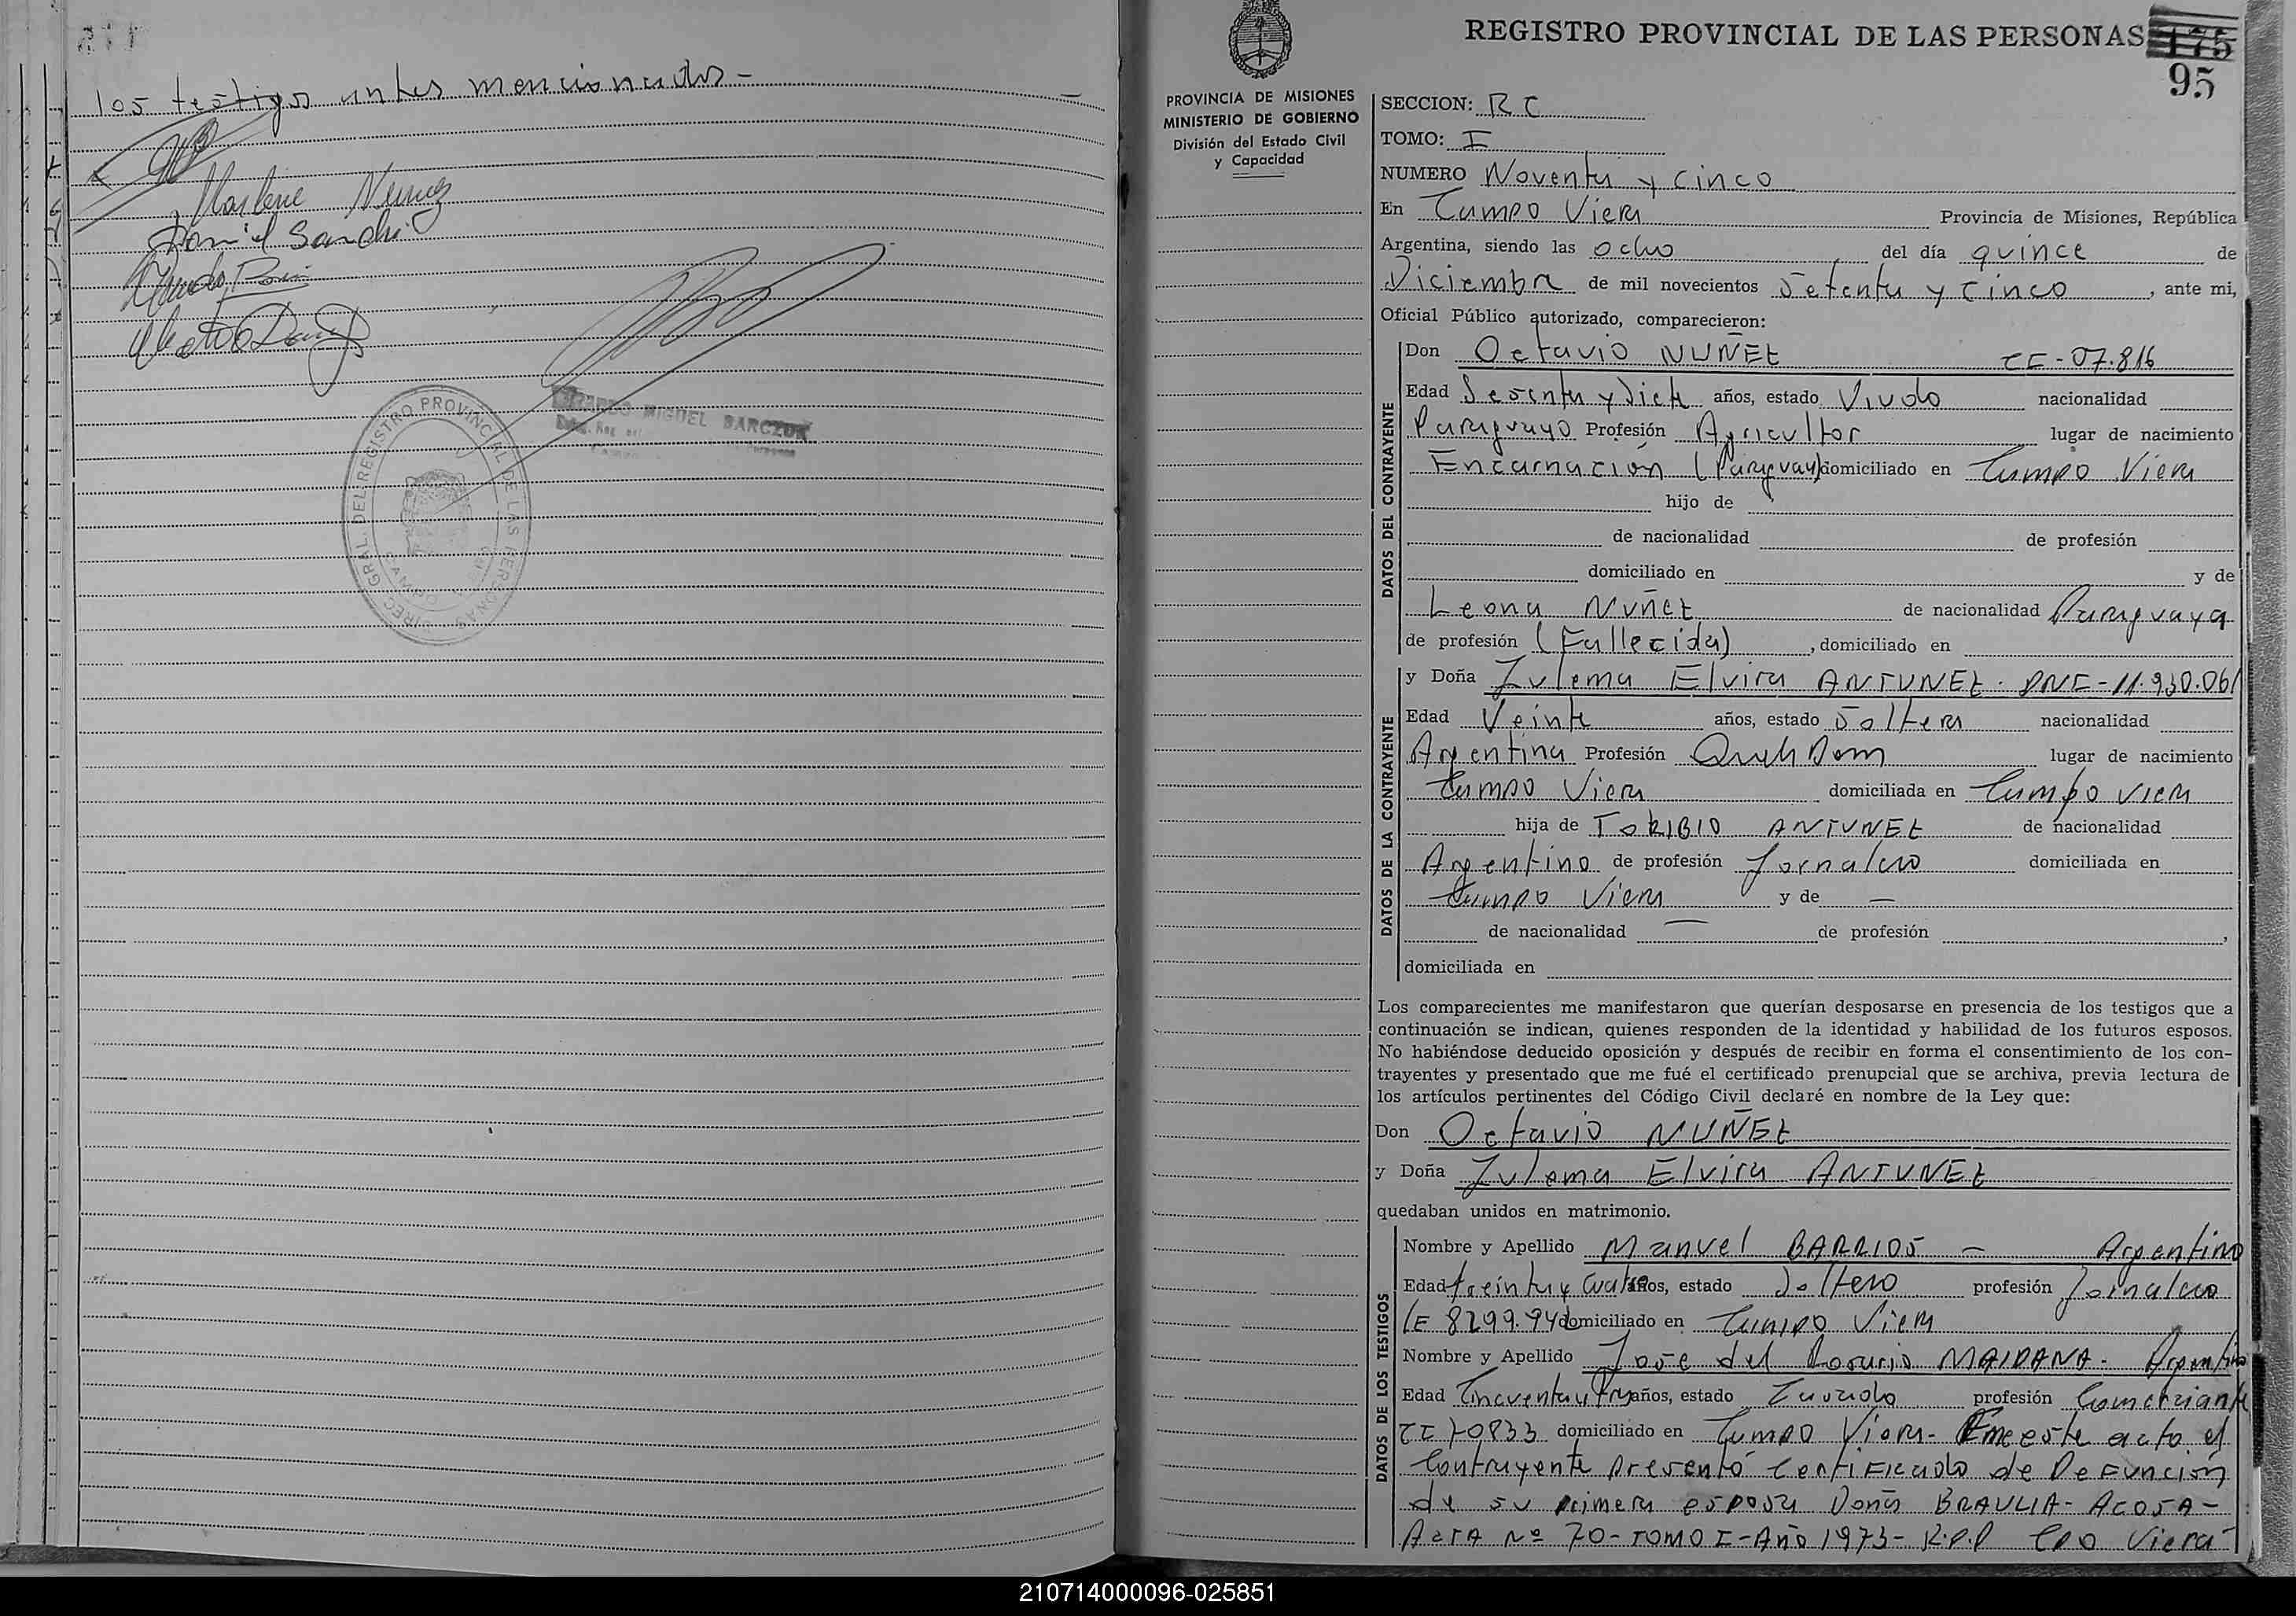 los testigos antes mencionados-
Marlene Nuñez
MIGUEL BARCZUK
DIREC. GRAL. DEL REGISTRO PROVINCIAL DE LAS PERSONAS
CAMPO
REGISTRO PROVINCIAL DE LAS PERSONAS 175
95
PROVINCIA DE MISIONES
MINISTERIO DE GOBIERNO
División del Estado Civil
y Capacidad
SECCION: RC
TOMO: I
NUMERO Noventa y Cinco
En Campo Viera Provincia de Misiones, República
Argentina, siendo las ocho del día quince de
Diciembre de mil novecientos Setenta y Cinco, ante mi,
Oficial Público autorizado, comparecieron:
DATOS DEL CONTRAYENTE
Don Octavio NUÑEZ CI-07.816
Edad Sesenta y Siete años, estado Viudo nacionalidad
Paraguayo Profesión Agricultor lugar de nacimiento
Encarnación (Paraguay) domiciliado en Campo Viera
hijo de
de nacionalidad de profesión
domiciliado en y de
Leona Nuñez de nacionalidad Paraguaya
de profesión (Fallecida), domiciliado en
DATOS DE LA CONTRAYENTE
y Doña Zulema Elvira ANTUNEZ. DNI-11.930.061
Edad Veinte años, estado Soltera nacionalidad
Argentina Profesión Queh Dom lugar de nacimiento
Campo Viera domiciliada en Campo Viera
hija de TORIBIO ANTUNEZ de nacionalidad
Argentino de profesión Jornalero domiciliada en
Campo Viera y de —
de nacionalidad — de profesión ,
domiciliada en
Los comparecientes me manifestaron que querían desposarse en presencia de los testigos que a
continuación se indican, quienes responden de la identidad y habilidad de los futuros esposos.
No habiéndose deducido oposición y después de recibir en forma el consentimiento de los con-
trayentes y presentado que me fué el certificado prenupcial que se archiva, previa lectura de
los artículos pertinentes del Código Civil declaré en nombre de la Ley que:
Don Octavio NUÑEZ
y Doña Zulema Elvira ANTUNEZ
quedaban unidos en matrimonio.
DATOS DE LOS TESTIGOS
Nombre y Apellido Manuel BARRIOS — Argentino
Edad treinta y cuatro años, estado Soltero profesión Jornalero
LE domiciliado en Campo Viera
Nombre y Apellido Jose del Rosario MAIDANA- Argentino
Edad Cincuenta y años, estado Casado profesión Comerciante
CI domiciliado en Campo Viera- este acto el
Contrayente presentó Certificado de Defunción
de su primera esposa Doña BRAULIA- ACOSA-
Acta Nº 70-TOMO I-Año 1973- R.P.P CPO Viera-
210714000096-025851